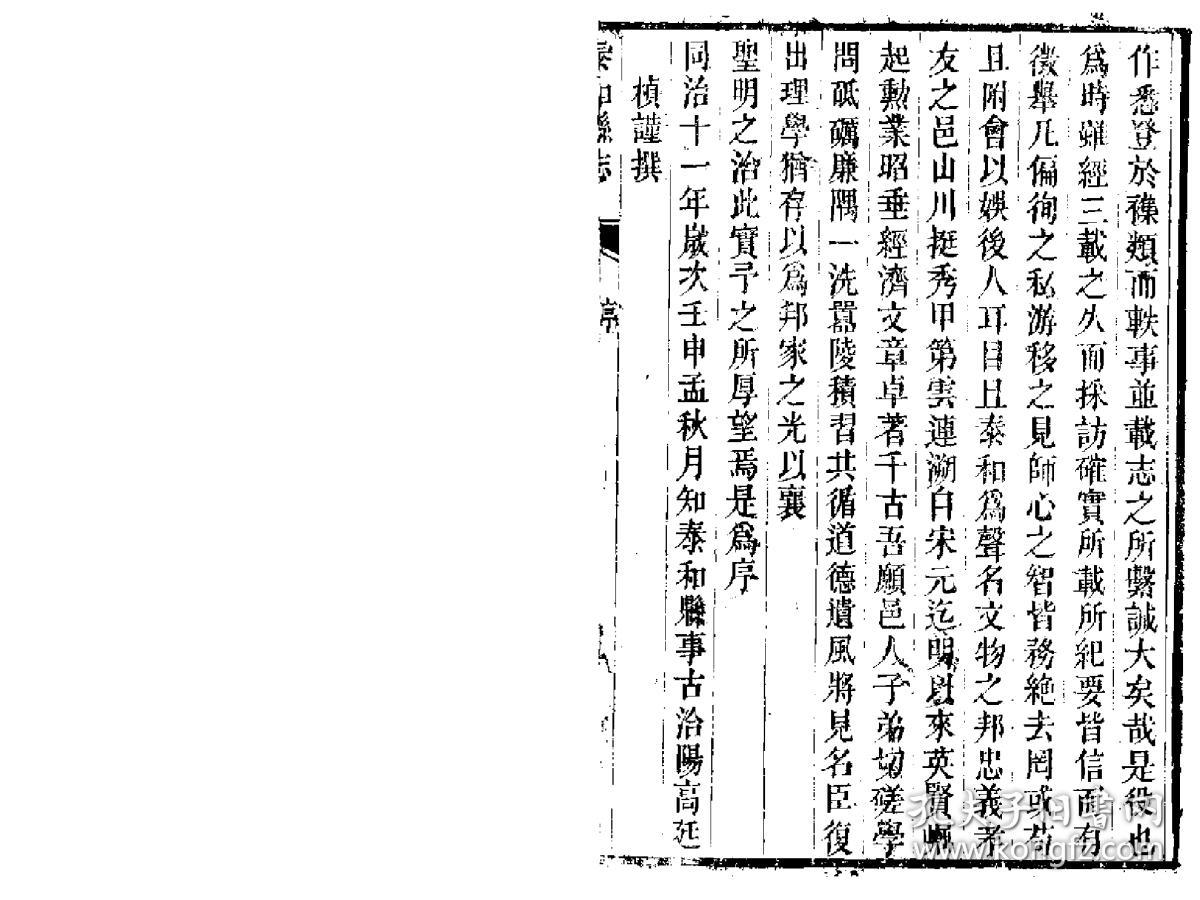 作悉登於襍類而軼事並載志之所繫誠大矣哉是役也
爲時雖經三載之久而採訪確實所載所紀要皆信而有
徵舉凡偏徇之私游移之見師心之智皆務絶去罔或苟
且附會以娛後人耳目且泰和爲聲名文物之邦忠義孝
友之邑山川挺秀甲第雲連溯自宋元迄明以來英賢崛
起勲業昭垂經濟文章卓著千古吾願邑人子弟切磋學
問砥礪廉隅一洗囂陵積習共循道德遺風將見名臣復
出理學猶存以爲邦家之光以襄
聖明之治此實予之所厚望焉是爲序
同治十一年歲次壬申孟秋月知泰和縣事古治陽高廷
楨謹撰
泰和縣志 序
孔夫子旧书网
www.kongfz.com